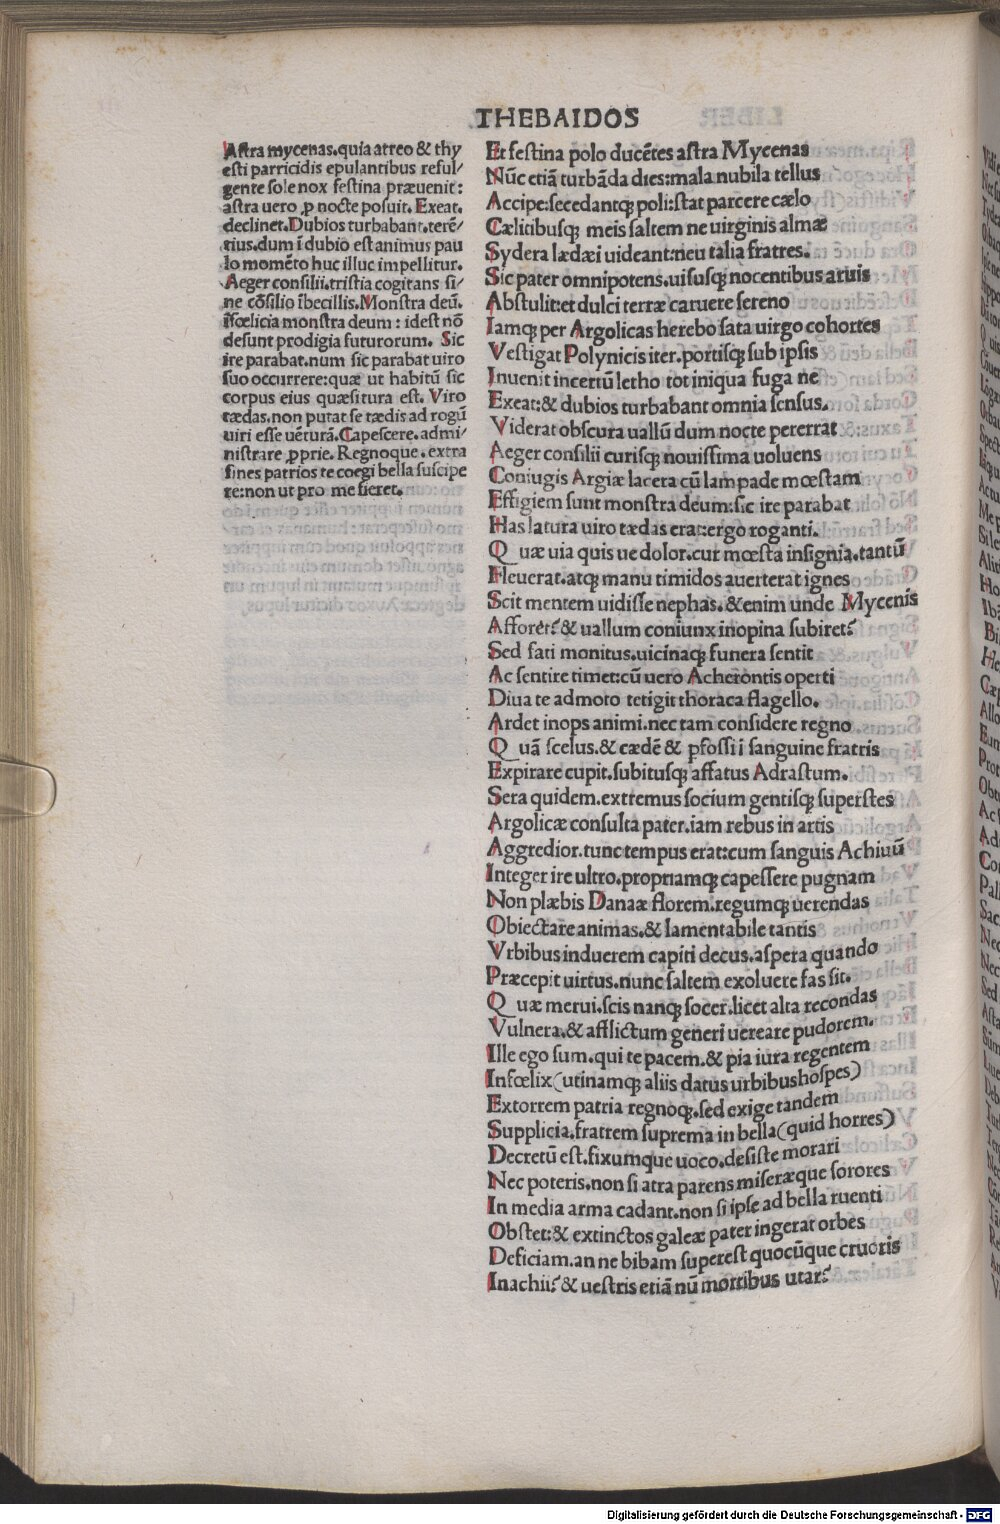 THEBAIDOS
Aſtra mycenas.quia atreo & thy
eſti parricidis epulantibus reful⸗
gente ſole nox feſtina præuenit:
aſtra uero ꝓ nocte poſuit. Exeat.
declinet. Dubios turbabant.terē⸗
tius.dum ī dubio eſt animus pau
lo momēto huc illuc impellitur.
Aeger conſilii.triſtia cogitans ſi⸗
ne cōſilio ībecillis. Monſtra deū.
īfœlicia monſtra deum : ideſt nō
deſunt prodigia futurorum. Sic
ire parabat.num ſic parabat uiro
ſuo occurrere:quæ ut habitū ſic
corpus eius quæſitura eſt. Viro
tædas.non putat ſe tædis ad rogū
uiri eſſe uēturā. Capeſcere. admi⸗
niſtrare ꝓprie. Regnoque. extra
fines patrios te coegi bella ſuſcipe
re:non ut pro me fieret.
Et feſtina polo ducētes aſtra Mycenas
Nūc etiā turbāda dies:mala nubila tellus
Accipe:ſecedantqꝫ poli:ſtat parcere cælo
Cælitibuſqꝫ meis ſaltem ne uirginis almæ
Sydera lædæi uideant:neu talia fratres.
Sic pater omnipotens.uiſuſqꝫ nocentibus aruis
Abſtulit:et dulci terræ caruere ſereno
Iamqꝫ per Argolicas herebo ſata uirgo cohortes
Veſtigat Polynicis iter.portiſqꝫ ſub ipſis
Inuenit incertū letho tot iniqua fuga ne
Exeat:& dubios turbabant omnia ſenſus.
Viderat obſcura uallū dum nocte pererrat
Aeger conſilii curiſqꝫ nouiſſima uoluens
Coniugis Argiæ lacera cū lampade mœſtam
Effigiem ſunt monſtra deum:ſic ire parabat
Has latura uiro tædas erat:ergo roganti.
Quæ uia quis ue dolor.cur mœſta inſignia.tantū
Fleuerat.atqꝫ manu timidos auerterat ignes
Scit mentem uidiſſe nephas.&enim unde Mycenis
Afforēt? & uallum coniunx inopina ſubiret?
Sed fati monitus.uicinaqꝫ funera ſentit
Ac ſentire timet:cū uero Acherontis operti
Diua te admoto tetigit thoraca flagello.
Ardet inops animi.nec tam conſidere regno
Quā ſcelus.& cædē & ꝑfoſſi i ſanguine fratris
Expirare cupit.ſubituſqꝫ affatus Adraſtum.
Sera quidem.extremus ſocium gentiſqꝫ ſuperſtes
Argolicæ conſulta pater.iam rebus in artis
Aggredior.tunc tempus erat:cum ſanguis Achiuū
Integer ire ultro.propriamqꝫ capeſſere pugnam
Non plæbis Danaæ florem.regumqꝫ uerendas
Obiectare animas.& lamentabile tantis
Vrbibus induerem capiti decus.aſpera quando
Præcepit uirtus.nunc ſaltem exoluere fas ſit.
Quæ merui.ſcis nanqꝫ ſocer.licet alta recondas
Vulnera.& afflictum generi uereare pudorem.
Ille ego ſum.qui te pacem.& pia iura regentem
Infœlix(utinamqꝫ aliis datus urbibus hoſpes)
Extorrem patria regnoqꝫ.ſed exige tandem
Supplicia.fratrem ſuprema in bella(quid horres)
Decretū eſt.fixumque uoco.deſiſte morari
Nec poteris.non ſi atra parens miſeræque ſorores
In media arma cadant.non ſi ipſe ad bella ruenti
Obſtet:& extinctos galeæ pater ingerat orbes
Deficiam.an ne bibam ſupereſt quocūque cruoris
Inachii? & ueſtris etiā nū mortibus utar?
Digitalisierung gefördert durch die Deutsche Forschungsgemeinschaft - DFG